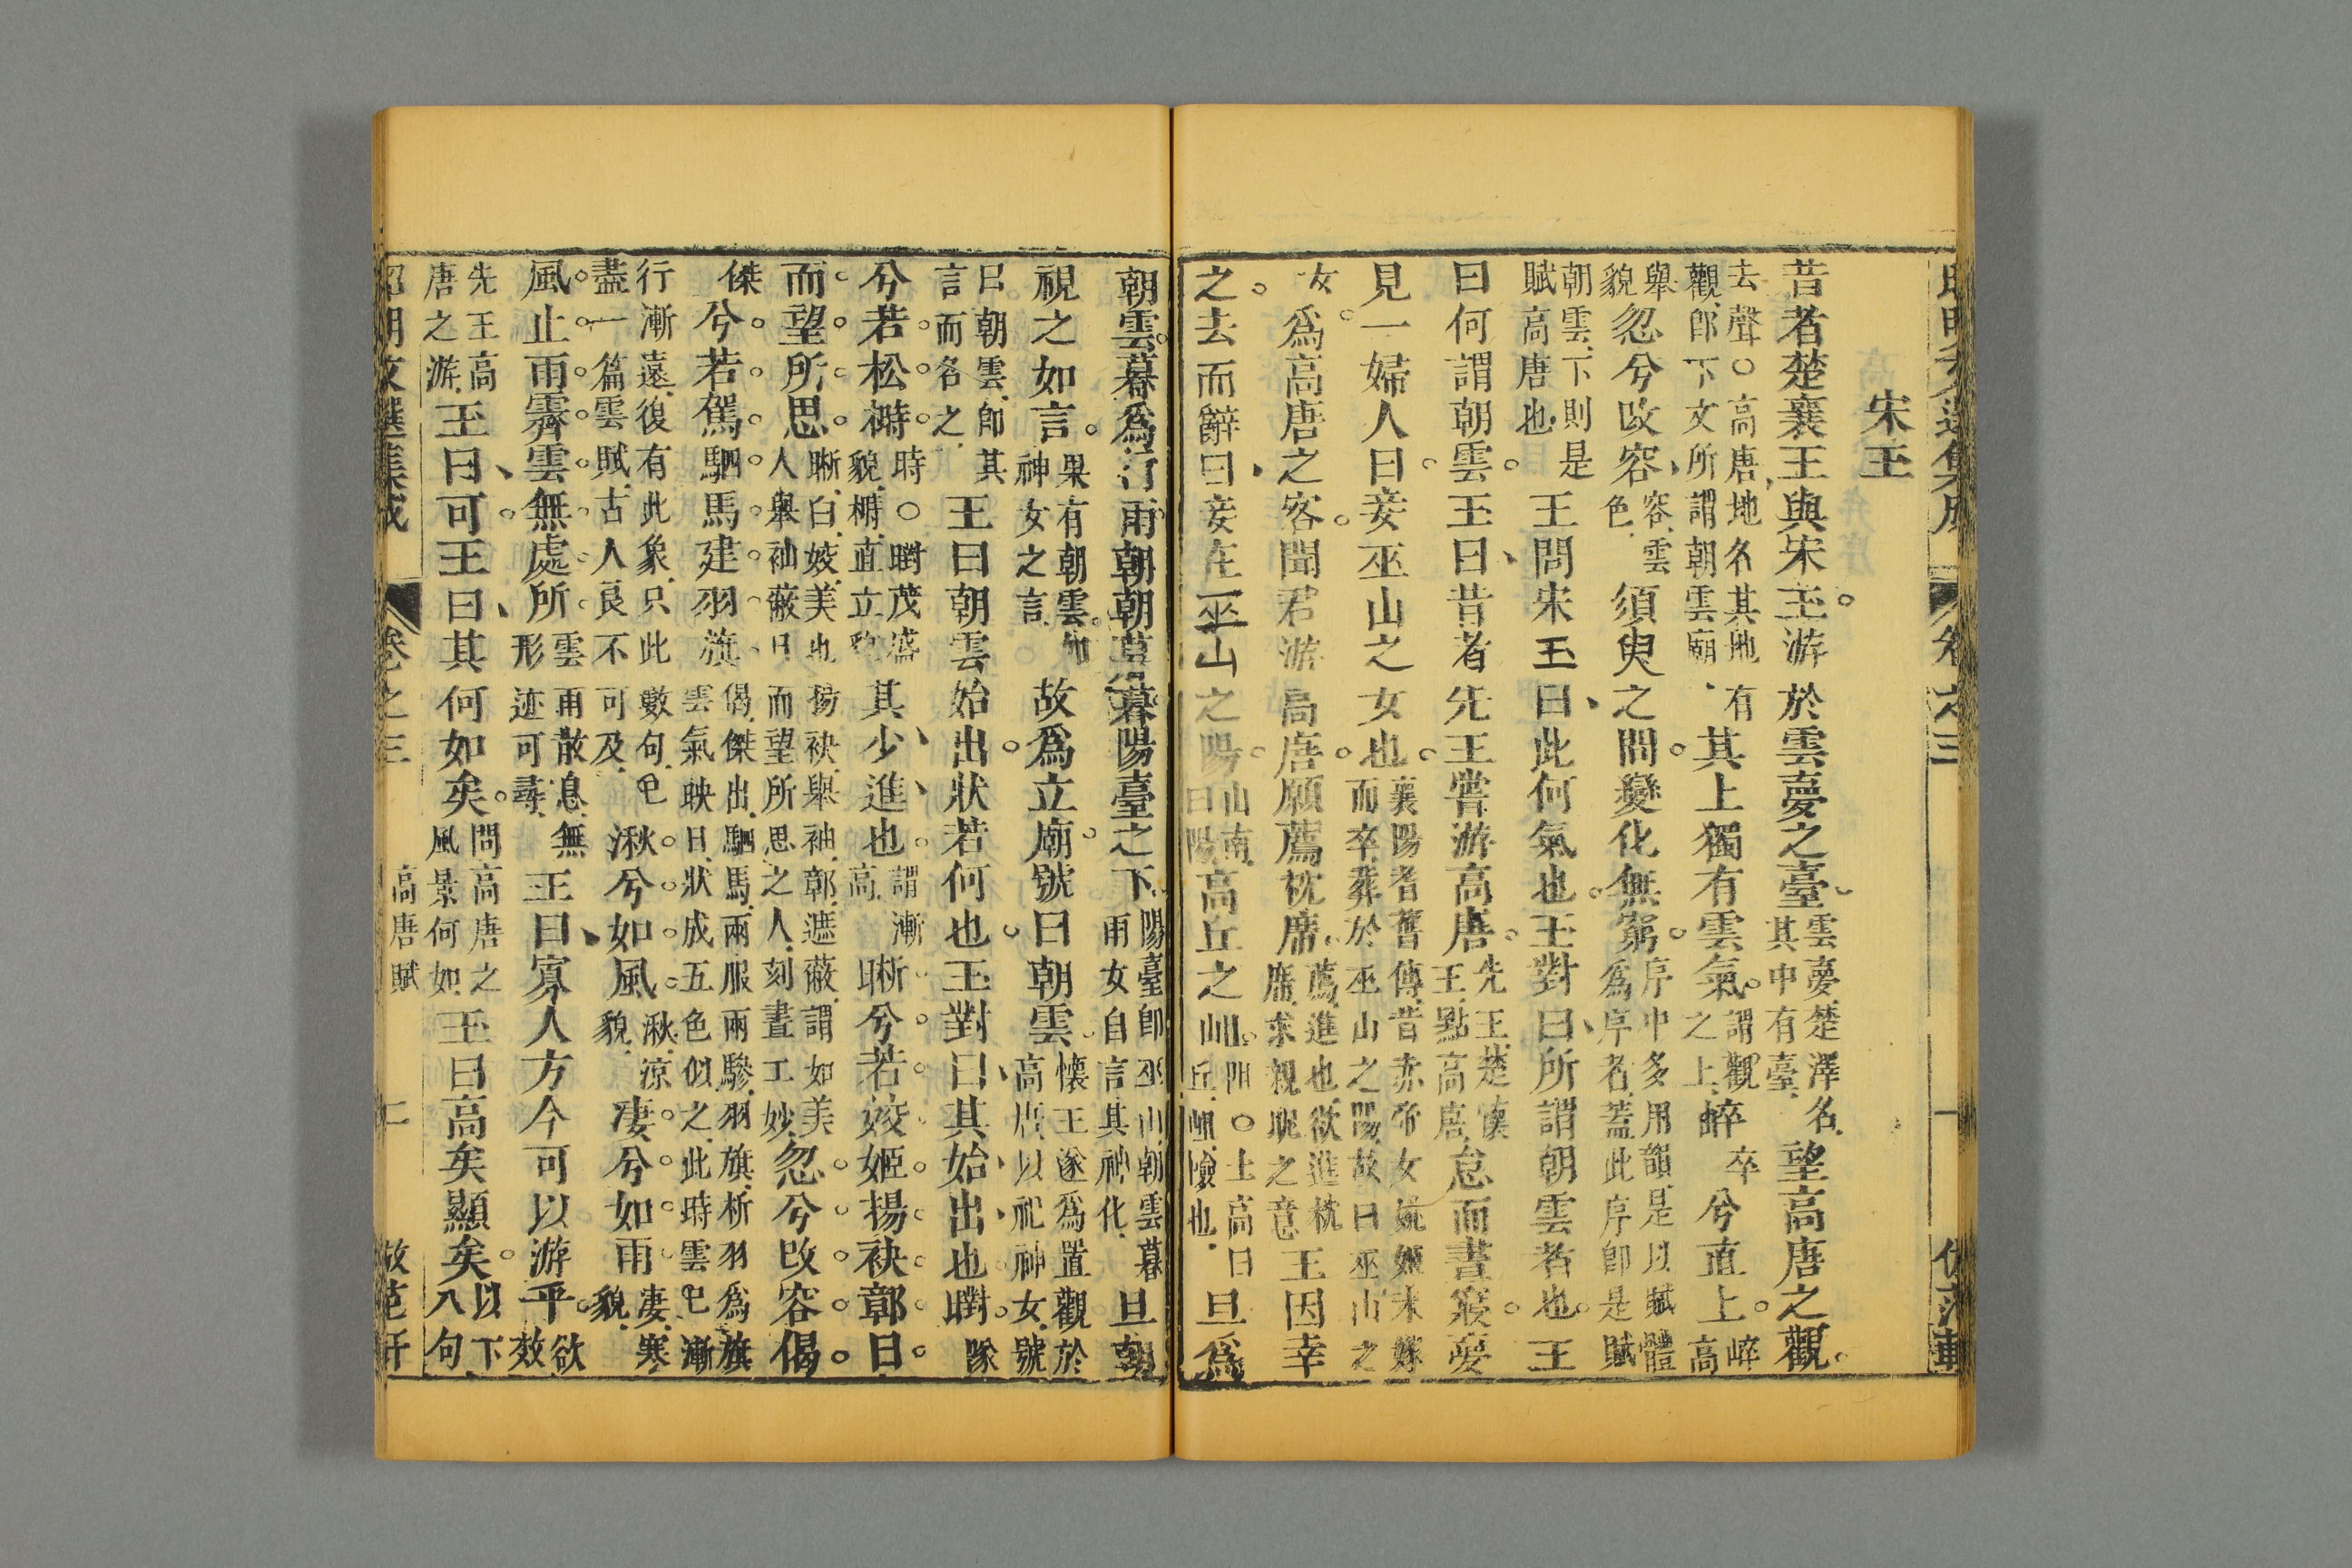 宋玉
昔者楚襄王與宋玉游於雲夢之臺雲夢楚澤名其中有臺望高唐之觀
去聲○高唐地名其地有觀郎下文所謂朝雲廟其上獨有雲氣謂觀之上崪卒兮直上崪高
舉貌忽兮改容容雲色須臾之間變化無窮序中多用韻是以賦體為序者蓋此序即是賦
朝雲下則是賦高唐也王問宋玉曰此何氣也玉對曰所謂朝雲者也王
曰何謂朝雲玉曰昔者先王嘗游高唐先王楚懷王點高唐怠而晝寢夢
見一婦人曰妾巫山之女也襄陽耆舊傳昔赤帝女姚姬未嫁而卒葬於巫山之陽故曰巫山之
女為高唐之客聞君游高唐願薦枕席薦進也欲進枕席求親昵之意王因幸
之去而辭曰妾在巫山之陽山南曰陽高丘之岨阻○土高曰丘岨險也旦為
朝雲暮為行雨朝朝暮暮陽臺之下陽臺即巫山朝雲暮雨女自言其神化旦朝
視之如言果有朝雲如神女之言故為立廟號曰朝雲懷王遂為置觀於高唐以祀神女號
曰朝雲即其言而名之王曰朝雲始出狀若何也玉對曰其始出也㬣隊
兮若松榯時○㬣茂盛貌榯直立貌其少進也謂漸高晰兮若姣姬揚袂鄣日
而望所思晰白姣美也揚袂舉袖鄣遮蔽謂如美人舉袖蔽日而望所思之人刻畫工妙忽兮改容偈
傑兮若駕駟馬建羽旗偈傑出駟馬兩服兩驂羽旗析羽為旗雲氣映日狀成五色似之此時雲已漸
行漸遠復有此象只此數句已盡一篇雲賦古人良不可及湫兮如風湫涼貌淒兮如雨淒寒貌
風止雨霽雲無處所雲雨散息無形迹可尋王曰寡人方今可以游乎欲效
先王高唐之游玉曰可王曰其何如矣問高唐之風景何如玉曰高矣顯矣以下八句
卷之三
高唐賦
二